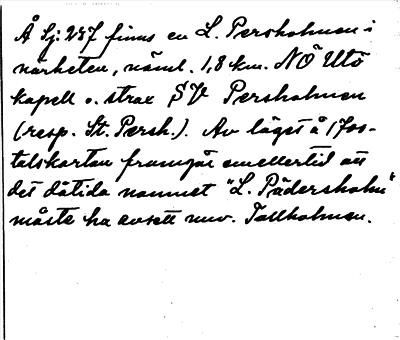 Å Sj: 257 finns en L. Persholmen i
närheten, näml. 1,8 km. NÖ Utö
kapell o. strax SV Persholmen
(resp. St. Persh.). Av läget å 1700-
talskartan framgår emellertid att
det dåtida namnet "L. Pädersholm"
måste ha avsett nuv. Tallholmen.